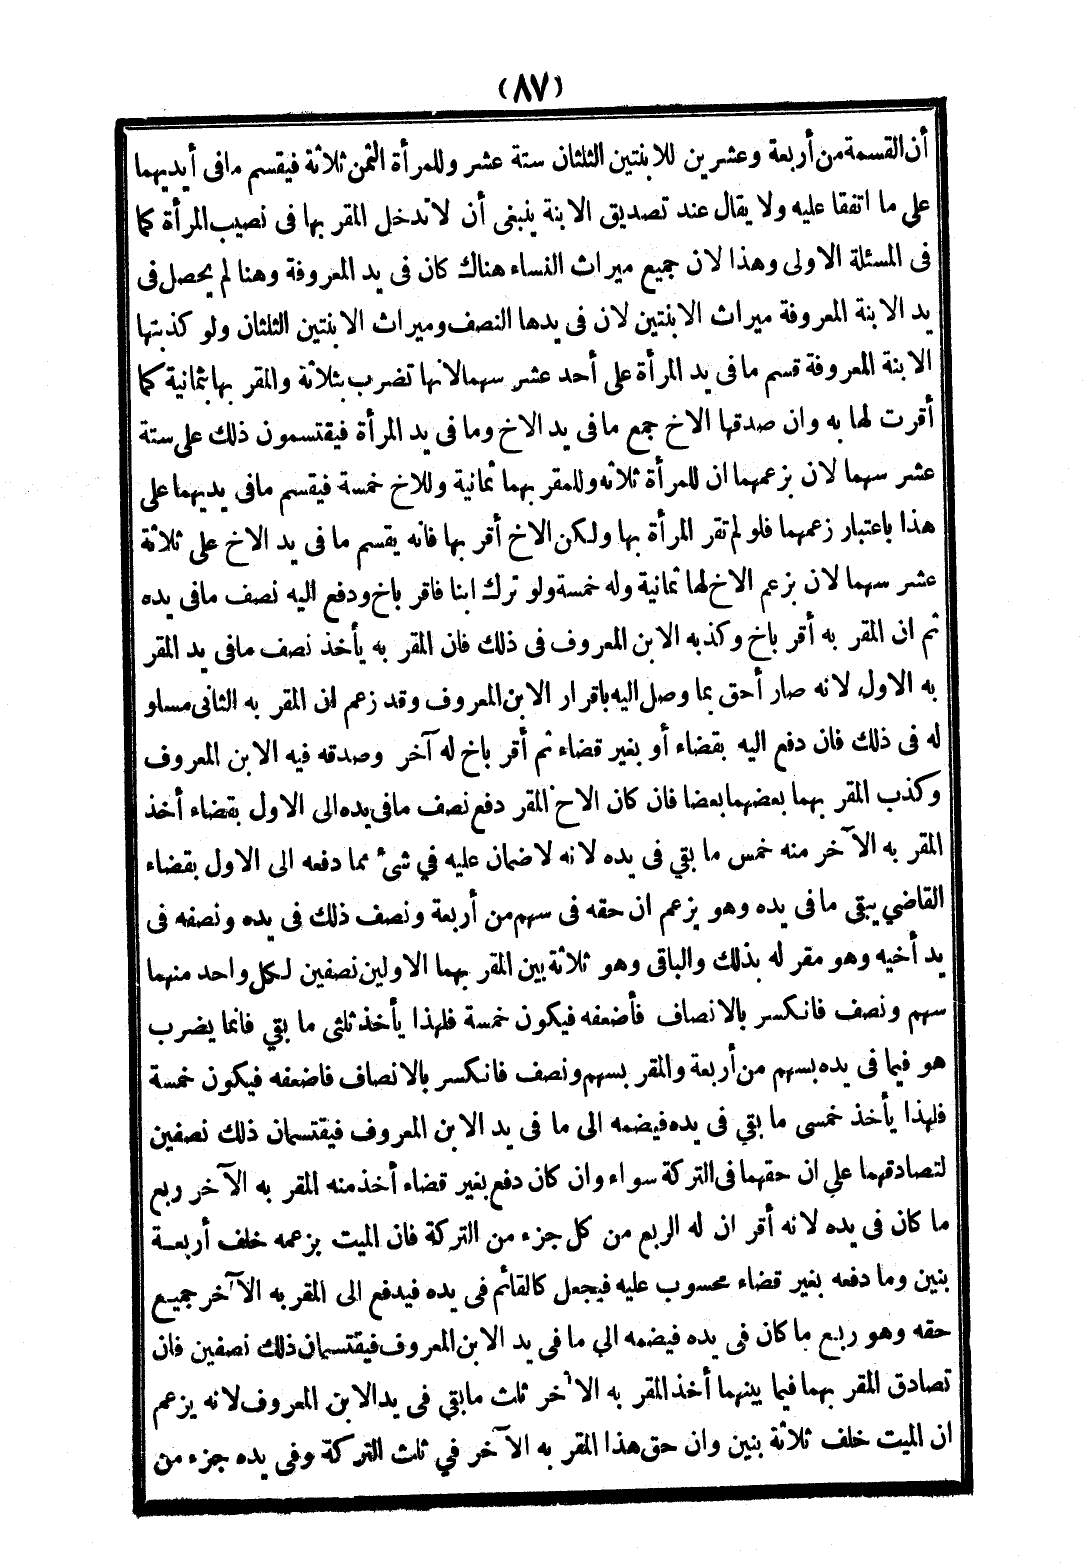 (٨٧)
أن القسمة من أربعة وعشرين للابنتين الثلثان ستة عشر وللمرأة الثمن ثلاثة فيقسم مافى أيديهما
على ما اتفقا عليه ولا يقال عند تصديق الابنة ينبغى أن لا تدخل المقر بها فى نصيب المرأة كما
فى المسئلة الاولى وهذا لان جميع ميراث النساء هناك كان فى يد المعروفة وهنا لم يحصل فى
يد الابنة المعروفة ميراث الابنتين لان فى يدها النصف وميراث الابنتين الثلثان ولو كذبتها
الابنة المعروفة قسم مافى يد المرأة على أحد عشر سهما لانها تضرب بثلاثة والمقر بها بثمانية كما
أقرت لها به وان صدقها الاخ جمع مافى يد الاخ وما فى يد المرأة فيقتسمون ذلك على ستة
عشر سهما لان بزعمهما ان للمرأة ثلاثه وللمقر بهما ثمانية وللاخ خمسة فيقسم مافى يديهما على
هذا باعتبار زعمهما فلو لم تقر المرأة بها ولكن الاخ أقر بها فانه يقسم ما فى يد الاخ على ثلاثة
عشر سهما لان بزعم الاخ لها ثمانية وله خمسة ولو ترك ابنا فاقر باخ ودفع اليه نصف مافى يده
ثم ان المقر به أقر باخ وكذبه الابن المعروف فى ذلك فان المقر به يأخذ نصف مافى يد المقر
به الاول لانه صار أحق بما وصل اليه باقرار الابن المعروف وقد زعم ان المقر به الثانى مساو
له فى ذلك فان دفع اليه بقضاء أو بغير قضاء ثم أقر باخ له آخر وصدقه فيه الابن المعروف
وكذب المقر بهما بعضهما بعضا فان كان الاخ المقر دفع نصف مافى يده الى الاول بقضاء أخذ
المقر به الآخر منه خمس ما بقي فى يده لانه لا ضمان عليه في شئ مما دفعه الى الاول بقضاء
القاضي يبقى ما فى يده وهو يزعم ان حقه فى سهم من أربعة ونصف ذلك فى يده ونصفه فى
يد أخيه وهو مقر له بذلك والباقى وهو ثلاثة بين المقر بهما الاولين نصفين لكل واحد منهما
سهم ونصف فانكسر بالانصاف فأضعفه فيكون خمسة فلهذا يأخذ ثلثى ما بقي فانما يضرب
هو فيما فى يده بسهم من أربعة والمقر بسهم ونصف فانكسر بالانصاف فاضعفه فيكون خمسة
فلهذا يأخذ خمسى ما بقي فى يده فيضمه الى ما فى يد الابن المعروف فيقتسمان ذلك نصفين
لتصادقهما علي ان حقهما فى التركة سواء وان كان دفع بغير قضاء أخذ منه المقر به الآخر ربع
ما كان فى يده لانه أقر ان له الربع من كل جزء من التركة فان الميت بزعمه خلف أربعة
بنين وما دفعه بغير قضاء محسوب عليه فيجعل كالقائم فى يده فيدفع الى المقر به الآخر جميع
حقه وهو ربع ما كان فى يده فيضمه الي ما فى يد الابن المعروف فيقتسمان ذلك نصفين فان
تصادق المقر بهما فيما بينهما أخذ المقر به الآخر ثلث مابقي فى يد الابن المعروف لانه يزعم
ان الميت خلف ثلاثة بنين وان حق هذا المقر به الآخر في ثلث التركة وفى يده جزء من